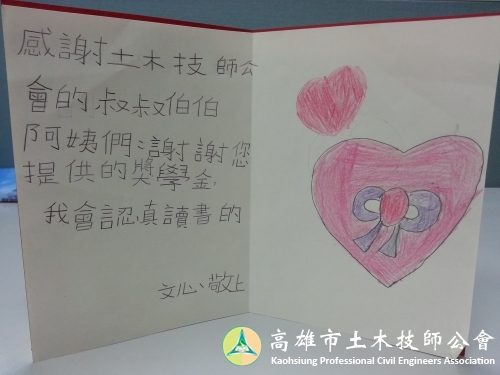 感謝土木技師公
會的叔叔伯伯
阿姨們:謝謝您
提供的獎學金,
我會認真讀書的
文心、敬上
高雄市土木技師公會
Kaohsiung Professional Civil Engineers Association